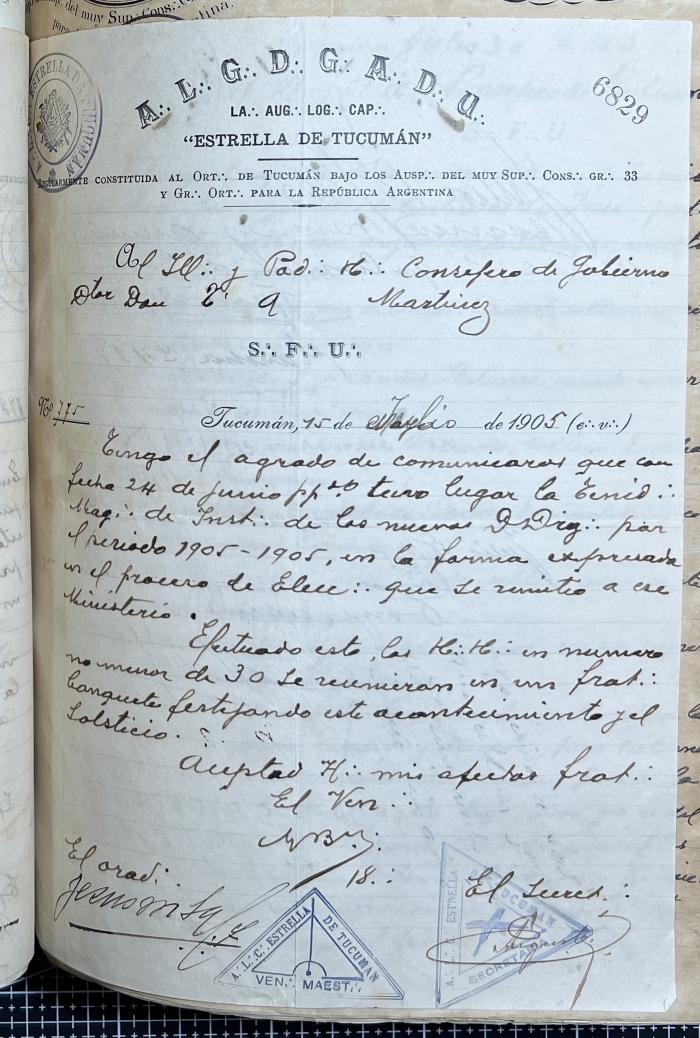 del muy Sup∴ Cons∴
A∴ L∴ G∴ D∴ G∴ A∴ D∴ U∴
6829
LA∴ AUG∴ LOG∴ CAP∴
"ESTRELLA DE TUCUMÁN"
REGULARMENTE CONSTITUIDA AL ORT∴ DE TUCUMÁN BAJO LOS AUSP∴ DEL MUY SUP∴ CONS∴ GR∴ 33
Y GR∴ ORT∴ PARA LA REPÚBLICA ARGENTINA
ESTRELLA DE TUCUMAN
Al Ill∴ y Pod∴ H∴ Consejero de Gobierno
Dtor Don E. A Martinez
S∴ F∴ U∴
Nº 775
Tucumán, 15 de Julio de 1905 (e∴ v∴)
Tengo el agrado de comunicaros que con
fecha 24 de junio pp.do tuvo lugar la Tenid∴
Mag∴ de Inst∴ de las nuevas D Dig∴ por
el periodo 1905-1905, en la forma expresada
en el proceso de Elecc∴ que se remitio a ese
Ministerio.
Efectuado esto, los H∴H∴ en numero
no menor de 30 se reunieron en un frat∴
banquete festejando este acontecimiento y el
Solsticio.
Aceptad H∴ mis afectos frat∴
El Ven∴
18∴
El orad∴
El Secret∴
A∴ L∴ C∴ ESTRELLA DE TUCUMAN
VEN∴ MAEST∴
A∴ L∴ C∴ ESTRELLA DE TUCUMAN
SECRETARIA